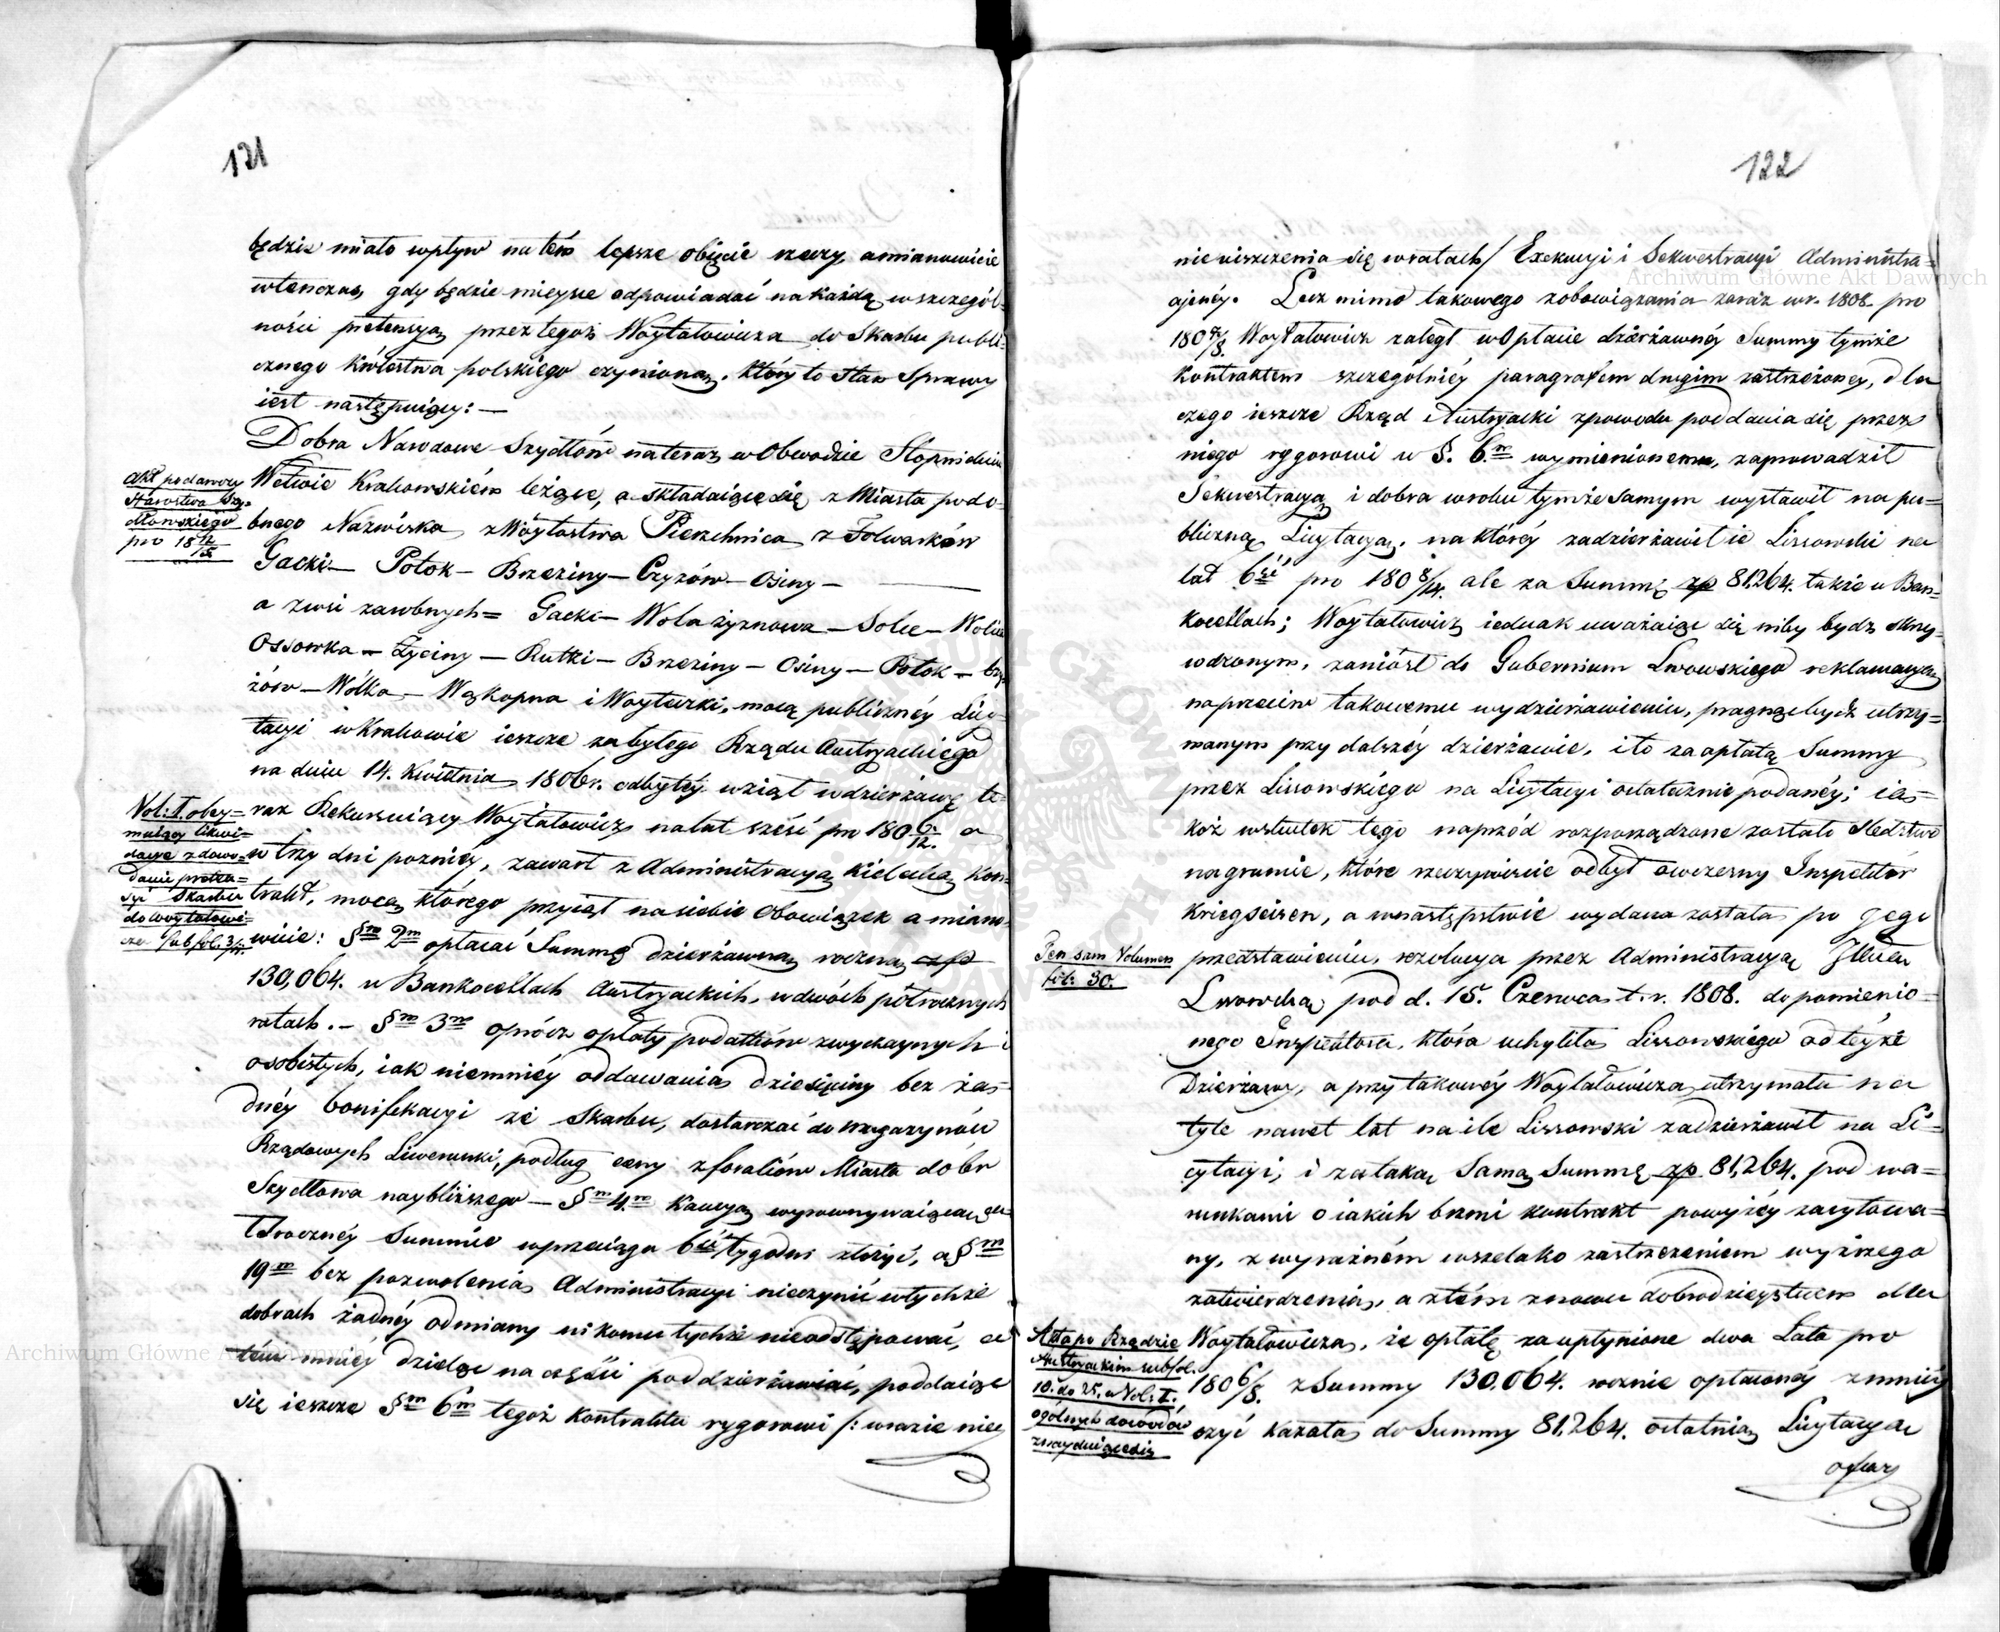 121
będzie miało wpływ na tém lepsze objęcie rzeczy, a mianowicie
wtenczas, gdy będzie mieysce odpowiadać na każdą w szczegól-
ności pretensyą przez tegoż Woytałowicza do Skarbu publi-
cznego Królestwa polskiego czynioną, który to stan Sprawy
iest następuiący: —
Dobra Narodowe Szydłów na teraz w Obwodzie Stopnickim
Wdtwie Krakowskiém leżące, a składaiące się z Miasta podo-
bnego Nazwiska, z Wóytostwa Pierzchnica, z Folwarków
Gacki — Potok — Brzeziny — Czyżów — Osiny —
a z wsi zarobnych = Gacki — Wola żyznowa — Solec — Wolica
Ossowka — Życiny — Rutki — Brzeziny — Osiny — Potok — Czy-
żów — Wólka — Wąkopna i Woyteczki, mocą publicznéy Licy-
tacyi w Krakowie ieszcze za byłego Rządu Austryackiego
na dniu 14. Kwietnia 1806 r. odbytéy wziął w dzierżawę te-
raz Rekuruiący Woytałowicz na lat sześć pro 1806/12. a
w trzy dni poźniéy, zawarł z Administracyą Kielecką Kon-
trakt, mocą którego przyiął na siebie Obowiązek a miano-
wicie: §m 2m opłacać Summę dzierżawną roczną zp
130,064. w Bankocetlach Austryackich, w dwóch półrocznych
ratach. — §m 3m oprócz opłaty podatków zwyczaynych i
osobistych, iak niemniéy oddawania dziesięciny bez ża-
dnéy bonifikacyi ze Skarbu, dostarczać do magazynów
Rządowych Liwerunki, podług ceny z foraliów Miasta dóbr
Szydłowa naybliższego — §m 4m Kaucyą wyrównywaiącą ca-
łorocznéy Summie w przeciągu 6ciu tygodni złożyć, a §m
19m bez pozwolenia Administracyi nieczynić w tychże
dobrach żadnéy odmiany nikomu tychże nieodstępować, a
tém mniéy dzieląc na części poddzierżawiać, poddaiąc
się ieszcze §m 6m tegoż Kontraktu rygorowi /: w razie nie
Akt podawczy
Starostwa Szy-
dłowskiego
pro 18 12/13
Vol: I. obey-
muiący likwi-
dacye z dowo-
dami preten-
syi Skarbu
do Woytałowi-
cza. Sub fol: 3/4.
122
nieuiszczenia się w ratach / Exekucyi i Sekwestracyi Administra-
cyjnéy. Lecz mimo takowego zobowiązania zaraz w r. 1808. pro
1807/8. Woytałowicz zaległ w Opłacie dzierżawnéy Summy tymże
Kontraktem szczegolniéy paragrafem drugim zastrzeżonéy, dla
czego ieszcze Rząd Austryacki z powodu poddania się przez
niego rygorowi w §. 6.m wymienionemu, zaprowadził
Sekwestracyą i dobra w roku tymże samym wystawił na pu-
bliczną Licytacyą, na któréy zadzierżawił ie Lissowski na
lat 6ść pro 1808/14. ale za Summę zp 81,264. także w Ban-
kocetlach; Woytałowicz iednak uważaiąc się niby bydź skrzy-
wdzonym, zaniósł do Gubernium Lwowskiego reklamacyą
naprzeciw takowemu wydzierżawieniu, pragnąc bydź utrzy-
manym przy dalszéy dzierżawie, i to za opłatą Summy
przez Lissowskiego na Licytacyi ostatecznie podanéy; ia-
koż wskutek tego naprzód rozporządzone zostało śledztwo
na gruncie, które rzeczywiście odbył owczesny Inspektor
Kriegseisen, a w następstwie wydana została po jego
przedstawieniu, rezolucya przez Administracyą
Lwowską pod d. 15. Czerwca t. r. 1808. do pomienio-
nego Inspektora, która uchyliła Lissowskiego od teyże
Dzierżawy, a przy takowéy Woytałowicza utrzymała na
tyle nawet lat na ile Lissowski zadzierżawił na Li-
cytacyi, i za taką samą Summę zp 81,264. pod wa-
runkami o iakich brzmi kontrakt powyżéy zacytowa-
ny, z wyraźném wszelako zastrzeżeniem wyższego
zatwierdzenia, a z tém znowu dobrodzieystwem dla
Woytałowicza, że opłatę za upłynione dwa Lata pro
1806/8. z Summy 130,064. rocznie opłaconéy zmniéy
szyć kazała do Summy 81,264. ostatnią Licytacyą
ofiar
Ten sam Volumen
fol: 30.
Akta po Rządzie
Austryackim sub fol.
10. do 25. w Vol: I.
ogólnych dowodów
znayduiące się